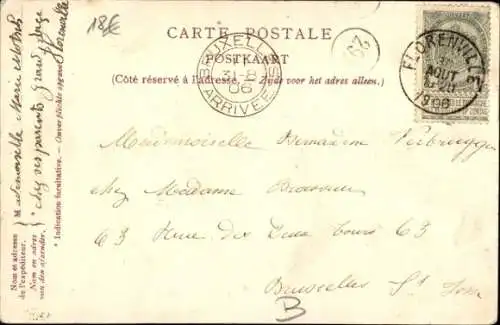 18€
CARTE POSTALE
POSTKAART
(Côté réservé à l'adresse. — Zijde voor het adres alleen.)
BRUXELLES
31-8
06
ARRIVÉE
29
FLORENVILLE
AOUT
1906
Mademoiselle Bernadem Verbruggen
chez Madame
63 Rue des Deux Tours 63
Bruxelles St Josse
B
Nom et adresse
de l'expéditeur.
Nom en adres
van den afzender.
Mademoiselle Marie
chez ses parents grand'place
Florenville
* Indication facultative. — Onverplichte opgave.